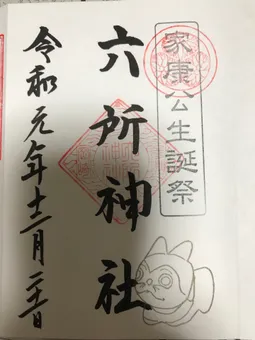 家康公生誕祭
六所神社
令和元年十二月二十二日